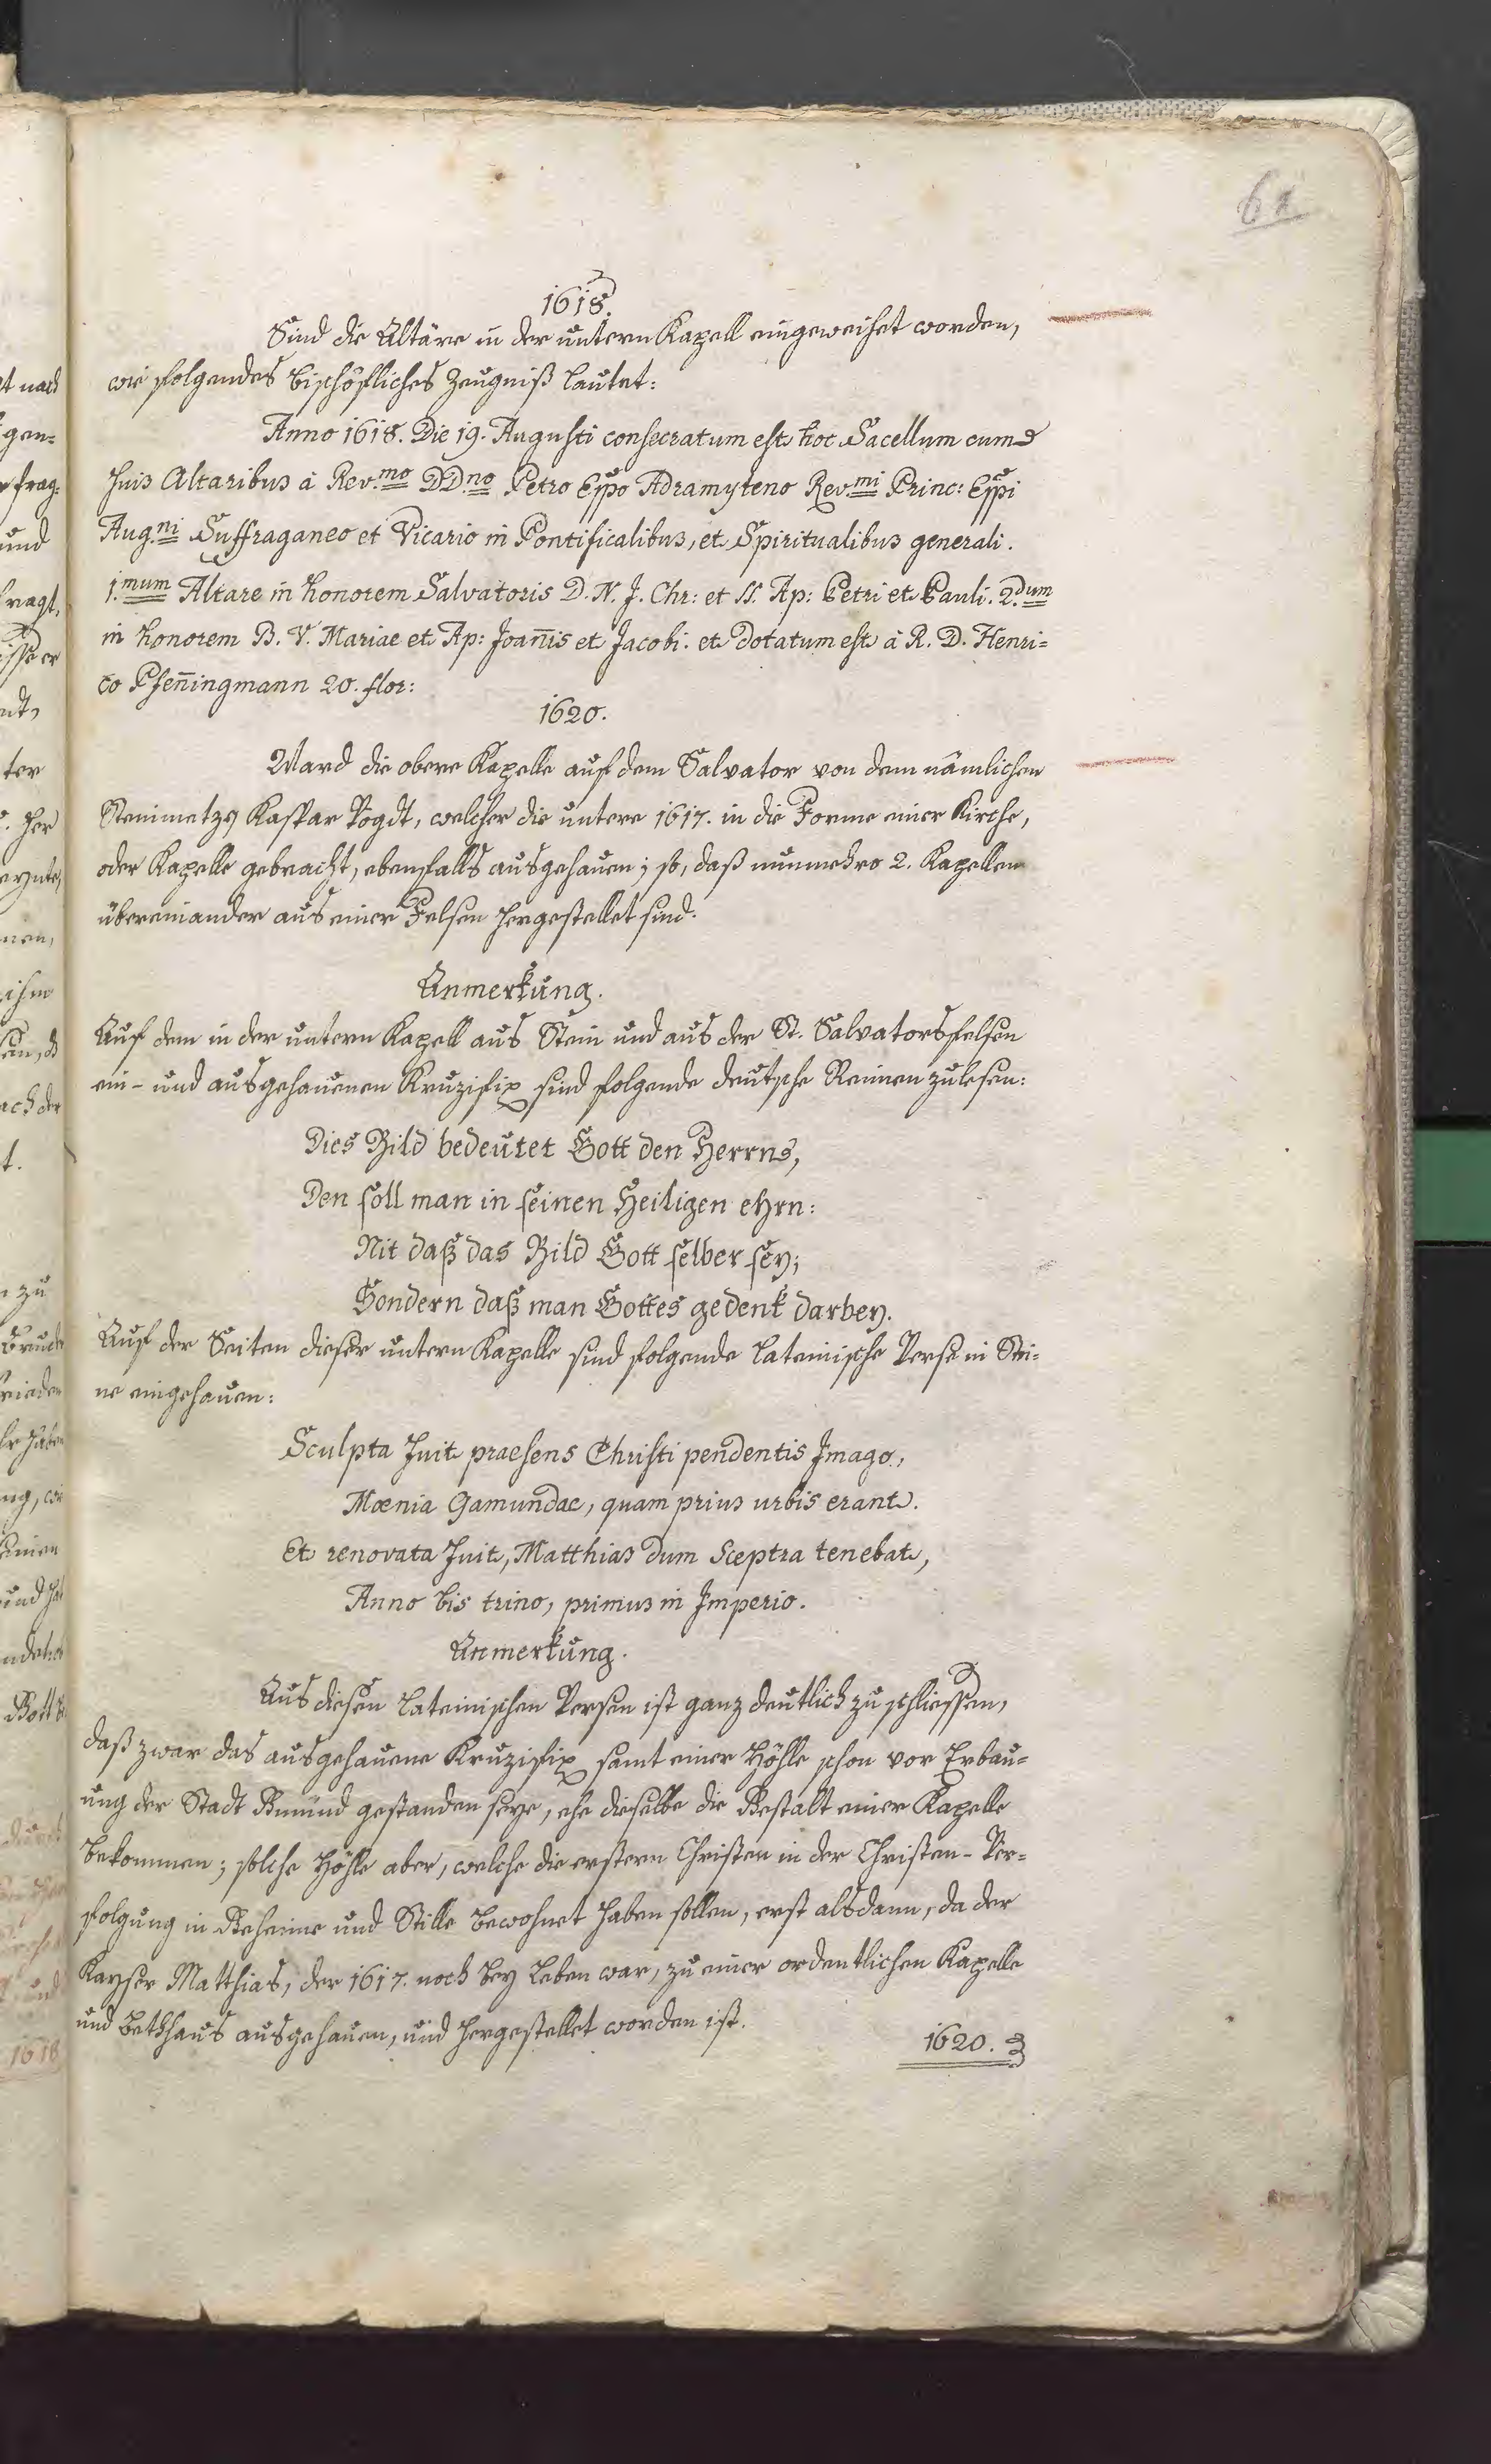 61
1618.
Sind die Altäre in der untern Kapell eingeweihet worden,
wie folgendes bischöfliches Zeugniß lautet:
Anno 1618. Die 19. Augusti consecratum est hoc Sacellum cum
suis Altaribus à Rev.mo DD.no Petro Eppo Adramyteno Rev.mi Princ: Eppi
Aug.ni Suffraganeo et Vicario in Pontificalibus, et Spiritualibus generali.
1.mum Altare in honorem Salvatoris D. N. J. Chr: et SS. Ap: Petri et Pauli. 2.dum
in honorem B. V. Mariae et Ap: Joan̄is et Jacobi. et dotatum est à R. D. Henri=
co Pfen̄ingmann 20. flor:
1620.
Ward die obere Kapelle auf dem Salvator von dem nämlichen
Steinmetzen Kaspar Vogdt, welcher die untere 1617. in die Forme einer Kirche,
oder Kapelle gebracht, ebenfalls ausgehauen; so, daß nunmehro 2. Kapellen
übereinander aus einer Felsen hergestellet sind.
Anmerkung.
Auf dem in der untern Kapell aus Stein und aus der St. Salvatorsfelsen
ein- und ausgehauenen Kruzifix sind folgende deutsche Reimen zu lesen:
Dies Bild bedeutet Gott den Herrns,
Den soll man in seinen Heiligen ehrn:
Nit daß das Bild Gott selber sey;
Sondern daß man Gottes gedenk darbey.
Auf der Seiten dieser untern Kapelle sind folgende lateinische Verse in Stei=
ne eingehauen:
Sculpta fuit praesens Christi pendentis Imago,
Mœnia Gamundae, quam prius urbis erant.
Et renovata fuit, Matthias dum Sceptra tenebat,
Anno bis trino, primus in Imperio.
Anmerkung.
Aus diesen lateinischen Versen ist ganz deutlich zu schliessen,
daß zwar das ausgehauene Kruzifix samt einer Höhle schon vor Erbau=
ung der Stadt Gmünd gestanden seye, ehe dieselbe die Gestalt einer Kapelle
bekommen; solche Höhle aber, welche die erstern Christen in der Christen-Ver=
folgung in Geheime und Stille bewohnet haben sollen, erst alsdann, da der
Kayser Matthias, der 1617. noch bey Leben war, zu einer ordentlichen Kapelle
und Bethhaus ausgehauen, und hergestellet worden ist.
1620.